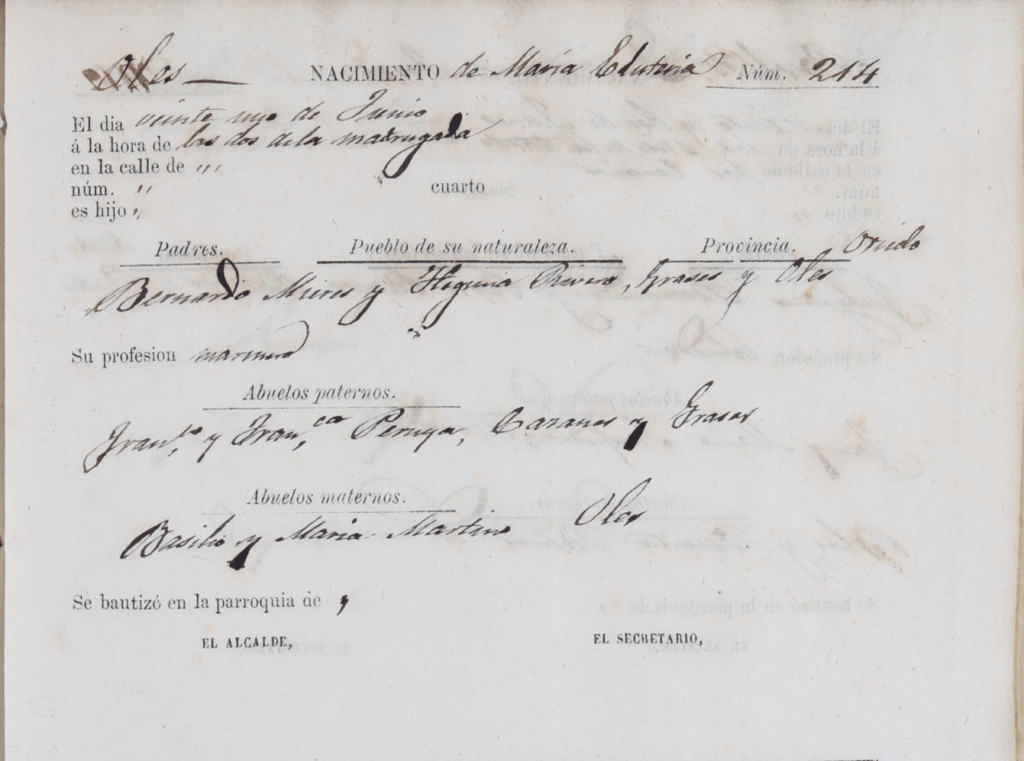 Oles —
NACIMIENTO de María Eluteria Núm. 214
El dia veinte uno de Junio
á la hora de las dos de la madrugada
en la calle de ,,,
núm. ,, ,, cuarto
es hijo ,,
Padres. Pueblo de su naturaleza. Provincia. Oviedo
Bernardo Mieres y Rivero, Grases y Oles
Su profesion marinero
Abuelos paternos.
Fran.co y Fran.ca Peruya, y Grases
Abuelos maternos.
Basilio y María Martino Oles
Se bautizó en la parroquia de ,
EL ALCALDE, EL SECRETARIO,